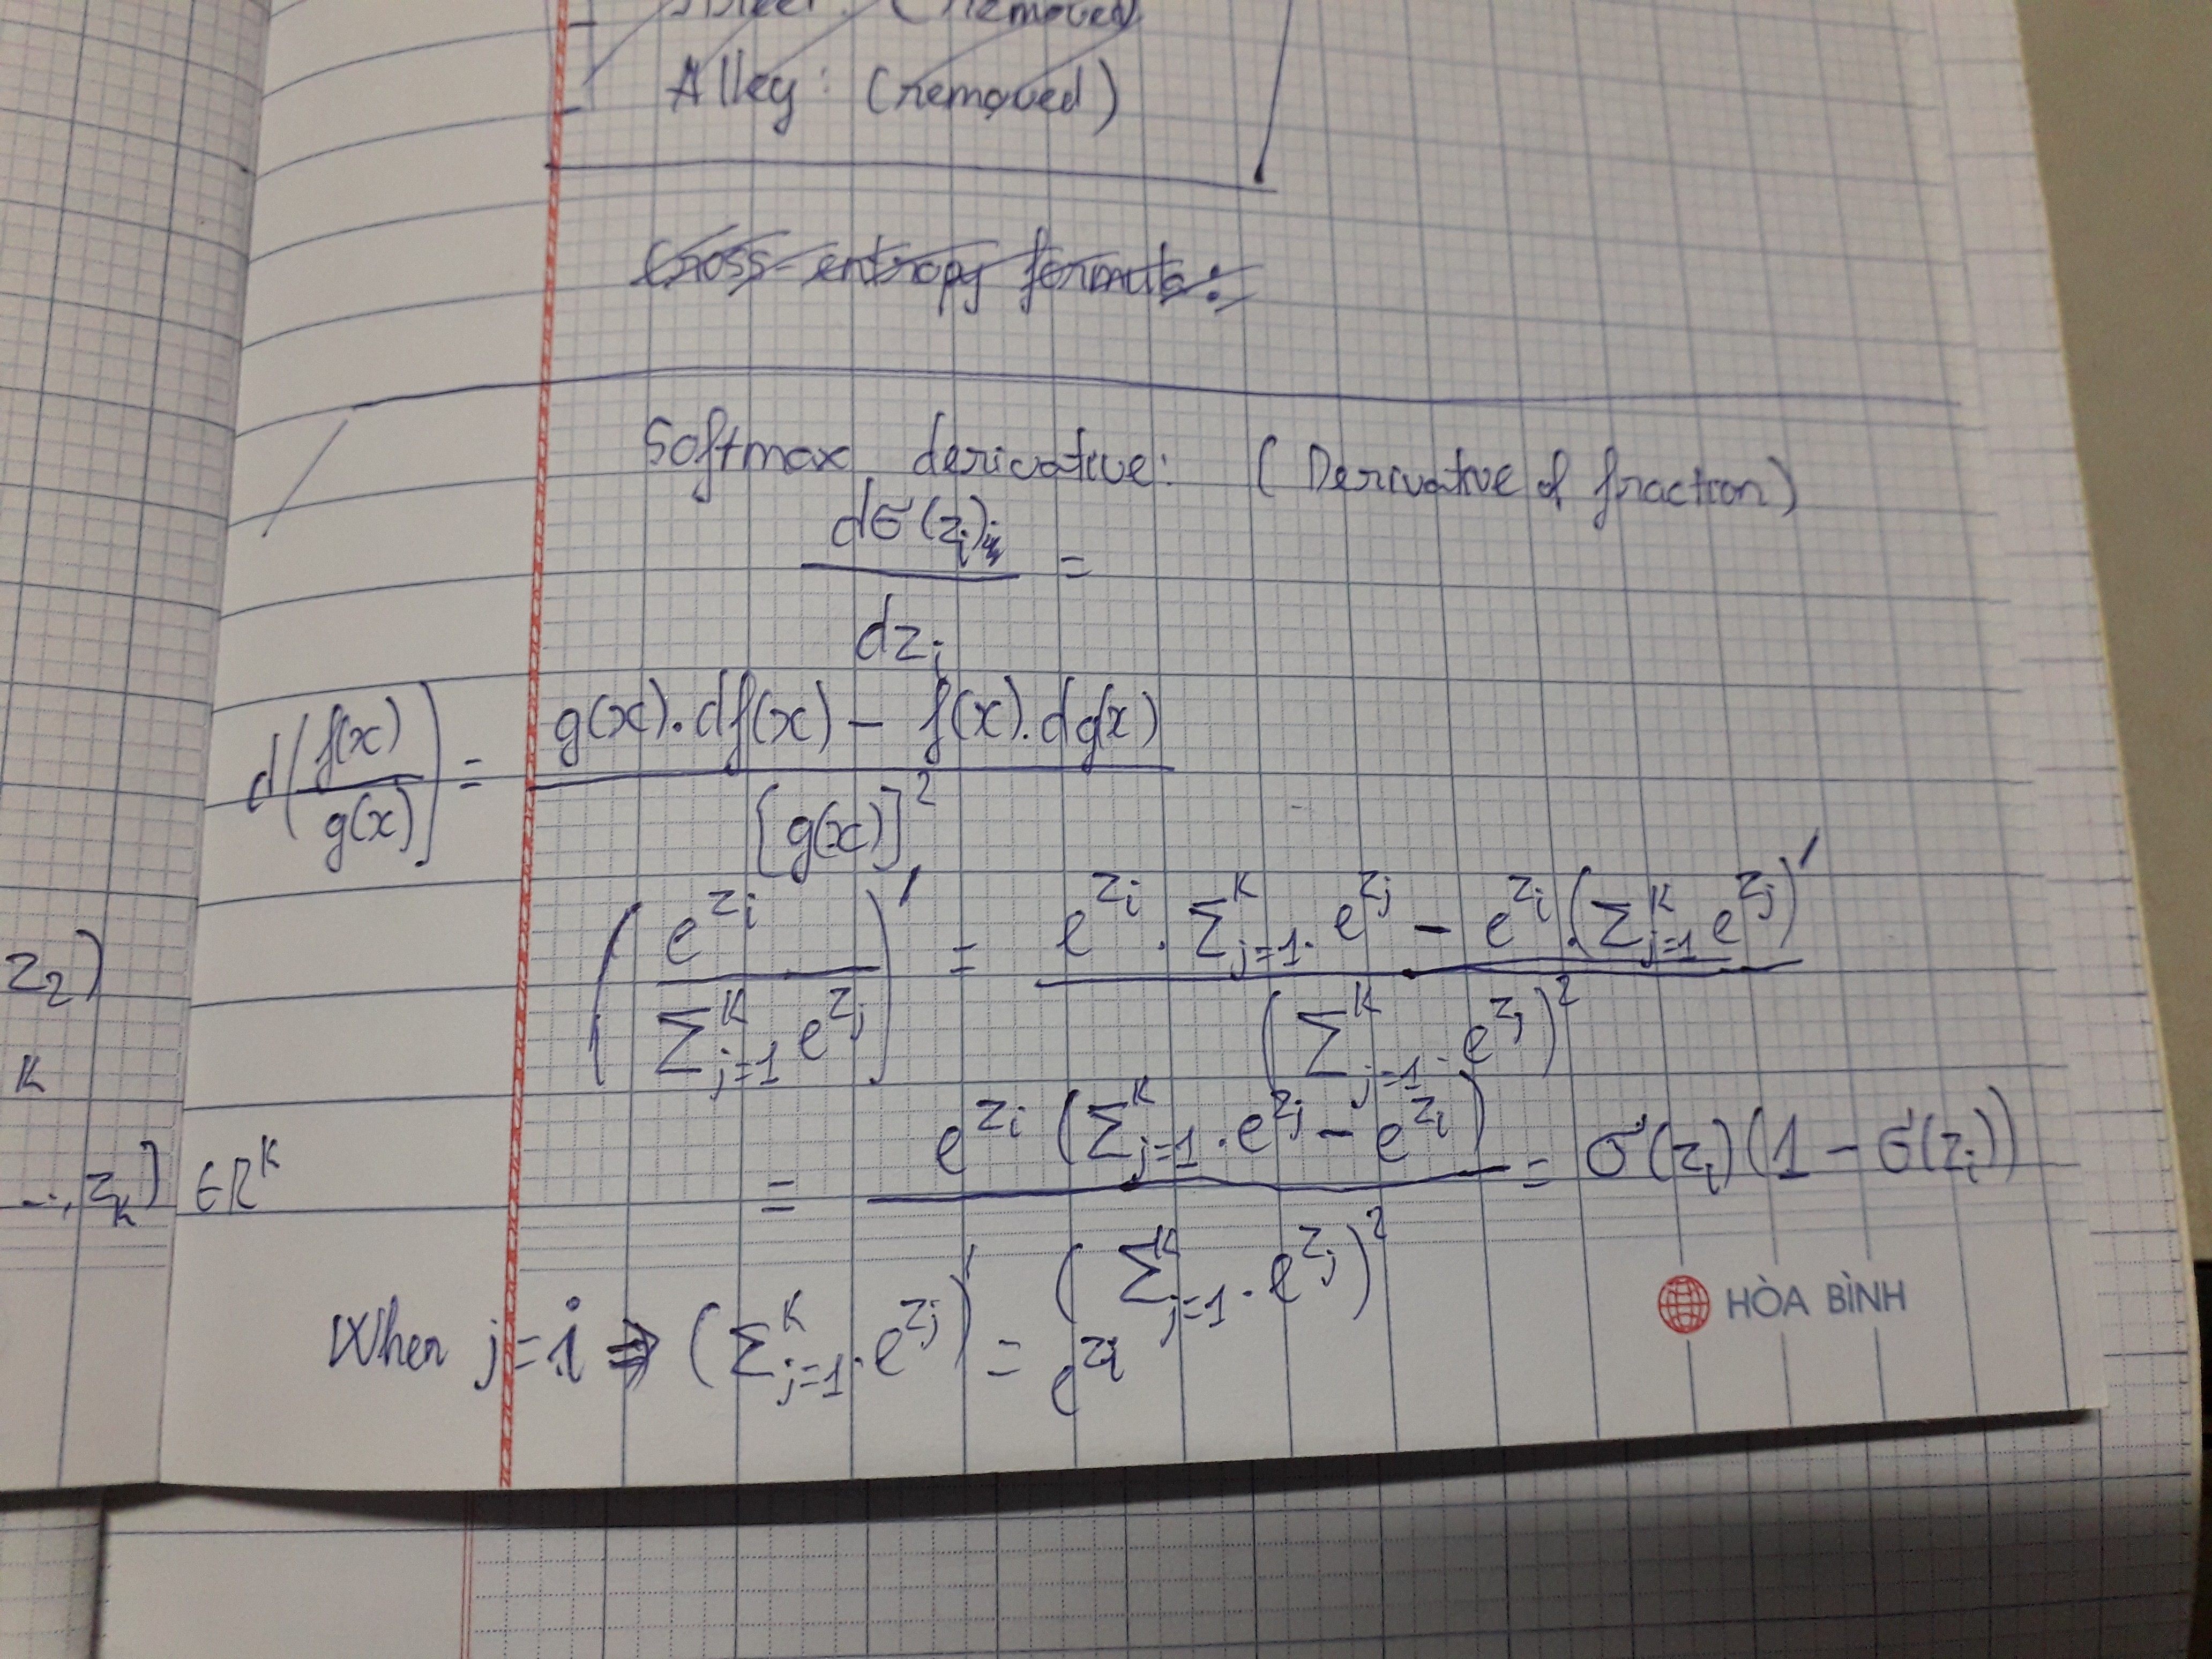 (removed)
Alley: (removed)
Cross-entropy formula:
Softmax derivative: (Derivative of fraction)
dσ(z_i)_i / dz_i =
d(f(x)/g(x)) = g(x).df(x) - f(x).dg(x) / [g(x)]²
(e^{z_i} / Σ_{j=1}^K e^{z_j})' = e^{z_i} . Σ_{j=1}^K . e^{z_j} - e^{z_i} . (Σ_{j=1}^K e^{z_j})' / (Σ_{j=1}^K . e^{z_j})²
z_2)
K
= e^{z_i} (Σ_{j=1}^K . e^{z_j} - e^{z_i}) / (Σ_{j=1}^K . e^{z_j})² = σ(z_i)(1 - σ(z_i))
..., z_K) ∈ R^K
When j=i ⇒ (Σ_{j=1}^K . e^{z_j})' = e^{z_i}
HÒA BÌNH